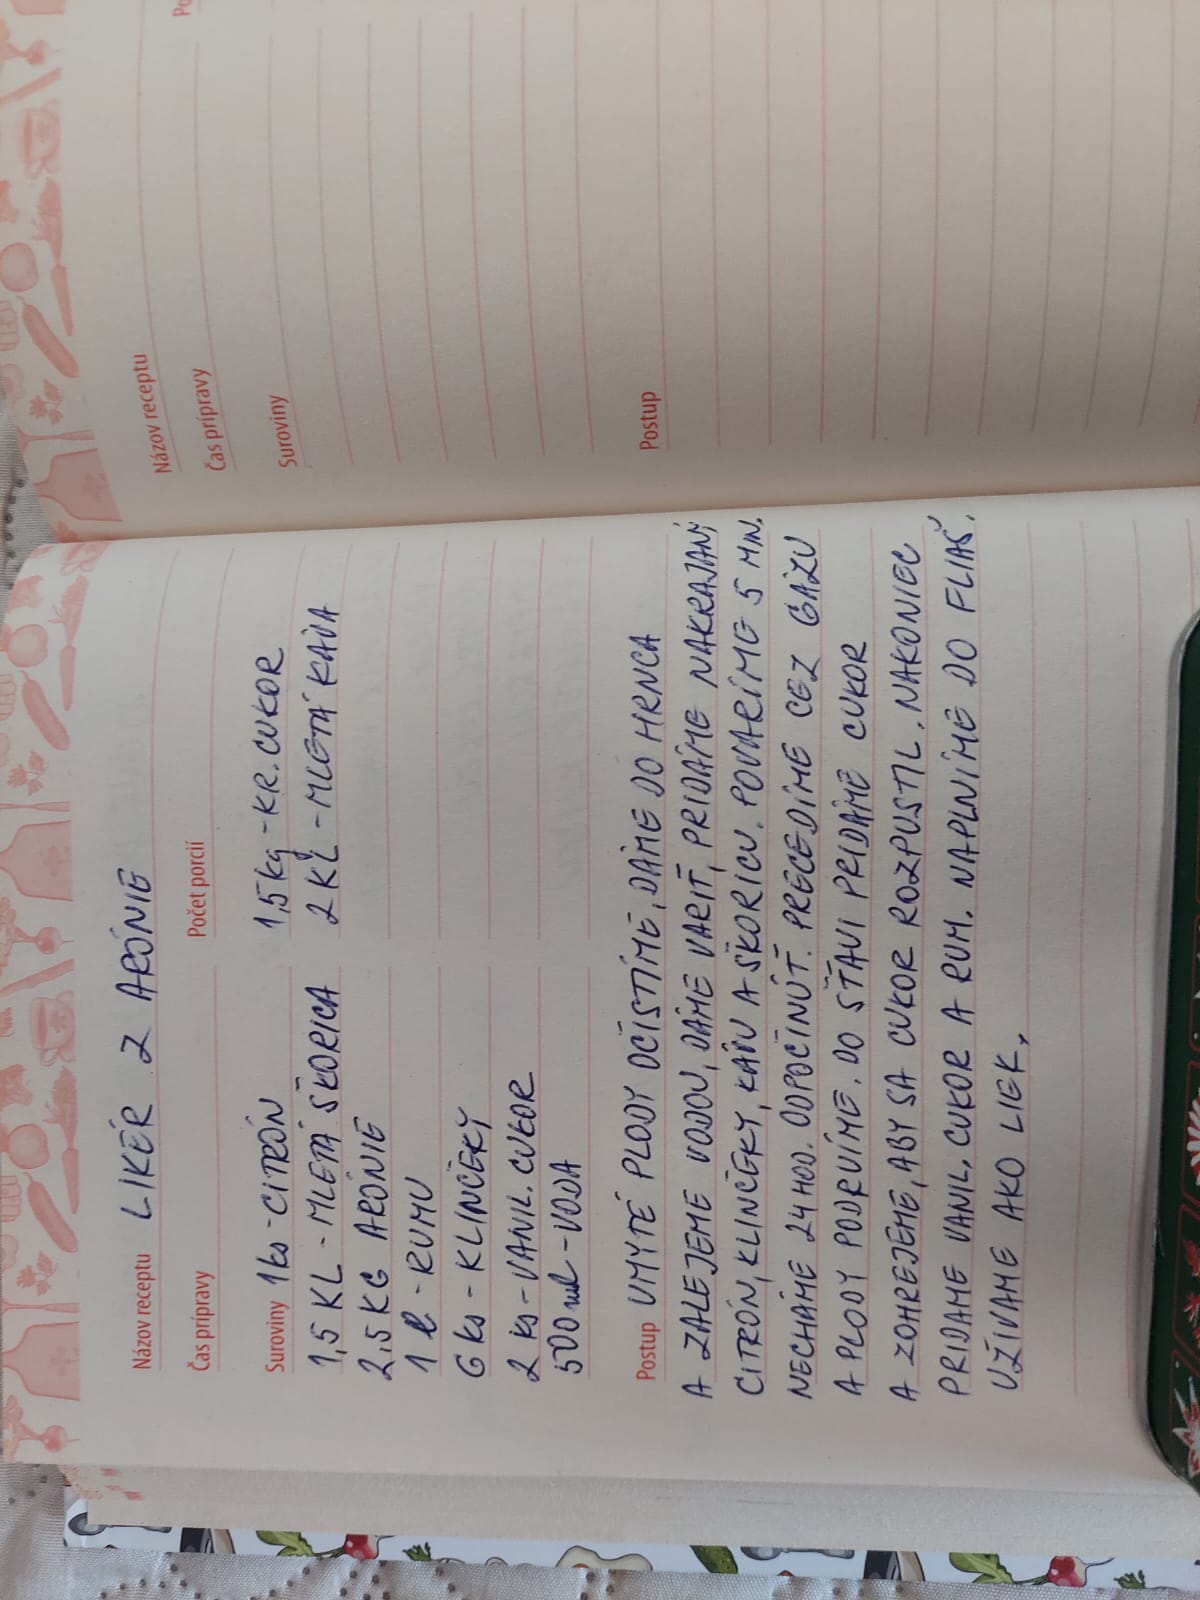 Názov receptu LIKÉR Z ARÓNIE
Čas prípravy
Počet porcií
Suroviny 1ks - CITRÓN 1,5kg - KR. CUKOR
1,5 KL - MLETÁ ŠKORICA 2 KL - MLETÁ KÁVA
2,5 KG ARÓNIE
1 l - RUMU
6 ks - KLINČEKY
2 ks - VANIL. CUKOR
500 ml - VODA
Postup UMYTÉ PLODY OČISTÍME, DÁME DO HRNCA
A ZALEJEME VODOU, DÁME VARIŤ, PRIDÁME NAKRÁJANÝ
CITRÓN, KLINČEKY, KÁVU A ŠKORICU. POVARÍME 5 MIN.
NECHÁME 24 HOD. ODPOČINÚŤ. PRECEDÍME CEZ GÁZU
A PLODY PODRVÍME. DO ŠŤAVI PRIDÁME CUKOR
A ZOHREJEME, ABY SA CUKOR ROZPUSTIL. NAKONIEC
PRIDÁME VANIL. CUKOR A RUM. NAPLNÍME DO FLIAŠ.
UŽÍVAME AKO LIEK.
Názov receptu
Čas prípravy
Suroviny
Postup